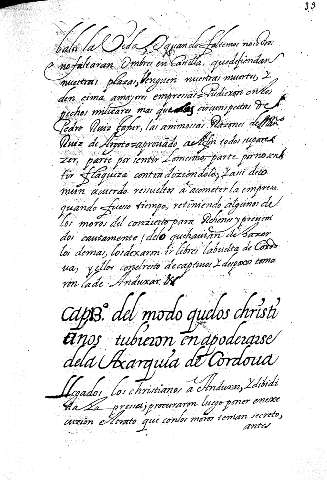 13
balas la Vida, y quando faltemos nosotros
no faltaran ombres en Castilla, que defiendan
nuestras plazas, Venguen nuestras muertes, y
den cima a mayores empresas. Pudieron en los
pechos militares mas que las circunspectas de
Pedro Ruiz Tafur, las animosas Razones de
Ruiz de Argote, aprouado, todos su pare
zer, parte por sentir lo mesmo, parte por no sen
tir flaqueza contradiziendolo; y assi de co
mun acuerdo resueltos a acometer la empresa
quando fuese tiempo, reteniendo algunos de
los moros del concierto para Rehenes, y preueni
dos cautamente de lo que hauian de hazer
los demas, los dexaron ir libres la buelta de Cordo
ua, y ellos con el resto de captiuos, y despojos toma
ron la de Anduxar.
Cap. del modo que los christi
anos tubieron en apoderarse
de la Axarquia de Cordoua
Llegados los christianos a Anduxar, y dibidi
da la presa, procuraron luego poner en exe
cucion el trato que con los moros tenian secreto,
antes